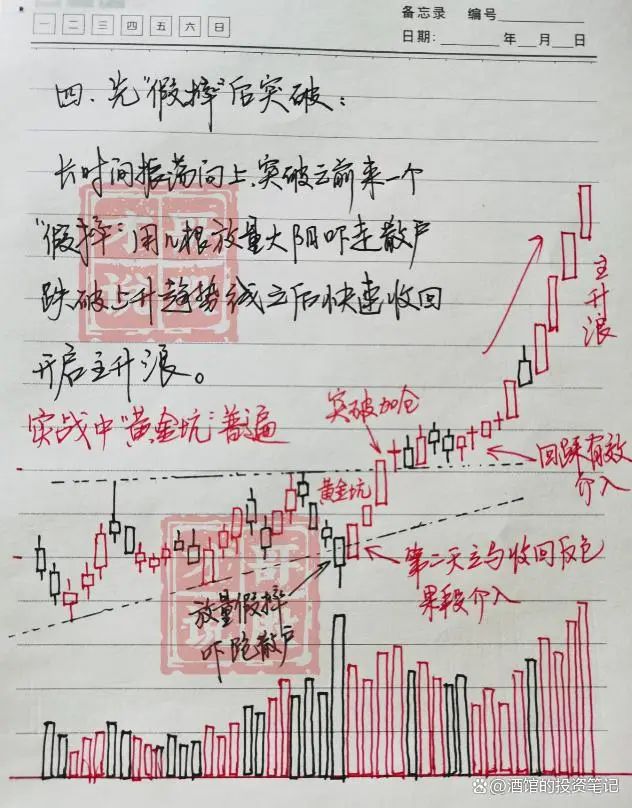 备忘录 编号
一 二 三 四 五 六 日
日期: 年 月 日
四.先"假摔"后突破:
长时间振荡向上,突破之前来一个
"假摔":用几根放量大阴吓走散户
跌破上升趋势线之后快速收回
开启主升浪。
实战中"黄金坑"普遍
主升浪
突破加仓
回踩有效
介入
黄金坑
第二天立马收回反包
果段介入
放量假摔
吓跑散户
@酒馆的投资笔记